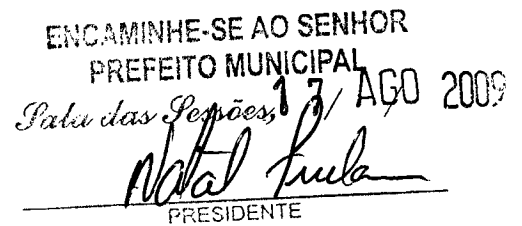 ENCAMINHE-SE AO SENHOR
PREFEITO MUNICIPAL
Sala das Sessões, 17/ AGO 2009
Natal
PRESIDENTE